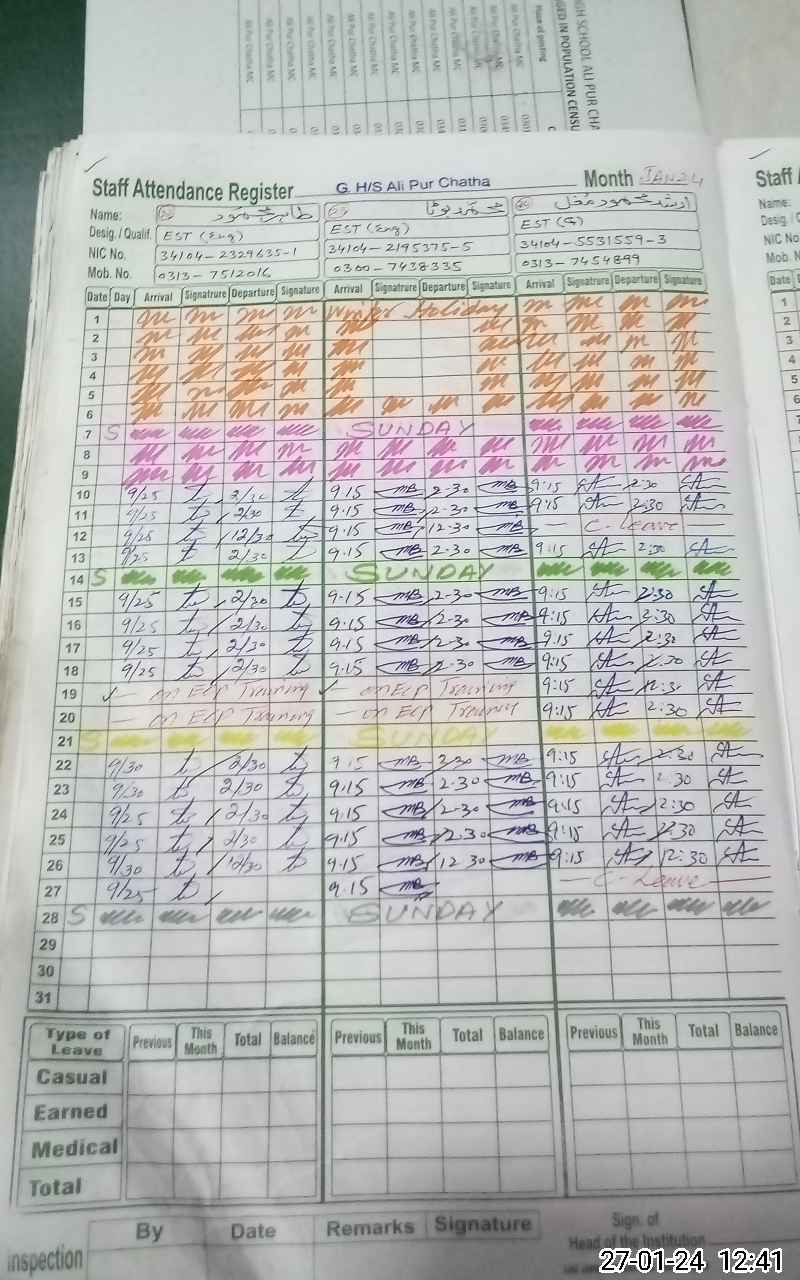 GH SCHOOL ALI PUR CHA
GED IN POPULATION CENSU
Place of posting
Ali Pur Chatha MC
Ali Pur Chatha MC
Ali Pur Chatha MC
Ali Pur Chatha MC
Ali Pur Chatha MC
Staff Attendance Register G. H/S Ali Pur Chatha Month JAN 24
Name: طاہر محمود محمد بوٹا ارشد محمود مغل
Desig. / Qualif. EST (Eng) EST (Eng) EST (G)
NIC No. 34104-2329635-1 34104-2195375-5 34104-5531559-3
Mob. No. 0313-7512016 0300-7438335 0313-7454899
Date Day Arrival Signatrure Departure Signature Arrival Signatrure Departure Signature Arrival Signatrure Departure Signature
1 Winter Holiday
2
3
4
5
6
7 S SUNDAY
8
9
10 9/25 2/30 9:15 MB 2-30 MB 9:15 2:30
11 9/25 2/30 9:15 MB 2-30 MB 9:15 2:30
12 9/25 12/30 9:15 MB 12-30 MB — C-Leave —
13 9/25 2/30 9:15 MB 2-30 MB 9:15 2:30
14 S SUNDAY
15 9/25 2/30 9:15 MB 2-30 MB 9:15 2:30
16 9/25 2/30 9:15 MB 2-30 MB 9:15 2:30
17 9/25 2/30 9:15 MB 2-30 MB 9:15 2:30
18 9/25 2/30 9:15 MB 2-30 MB 9:15 2:30
19 ✓ — on ECP Training ✓ — on ECP Training 9:15 12:30
20 — on ECP Training — on ECP Training 9:15 2:30
21 S SUNDAY
22 9/30 2/30 9:15 MB 2:30 MB 9:15 2:30
23 9/30 2/30 9:15 MB 2-30 MB 9:15 2:30
24 9/25 2/30 9:15 MB 2-30 MB 9:15 2:30
25 9/25 2/30 9:15 MB 2-30 MB 9:15 2:30
26 9/30 12/30 9:15 MB 12-30 MB 9:15 12:30
27 9/25 9:15 MB — C-Leave —
28 S SUNDAY
29
30
31
Type of Leave Previous This Month Total Balance Previous This Month Total Balance Previous This Month Total Balance
Casual
Earned
Medical
Total
inspection By Date Remarks Signature Sign. of
Head of the Institution
Staff A
Name:
Desig. /
NIC No
Mob. N
Date
1
2
3
4
5
6
7
8
9
27-01-24 12:41